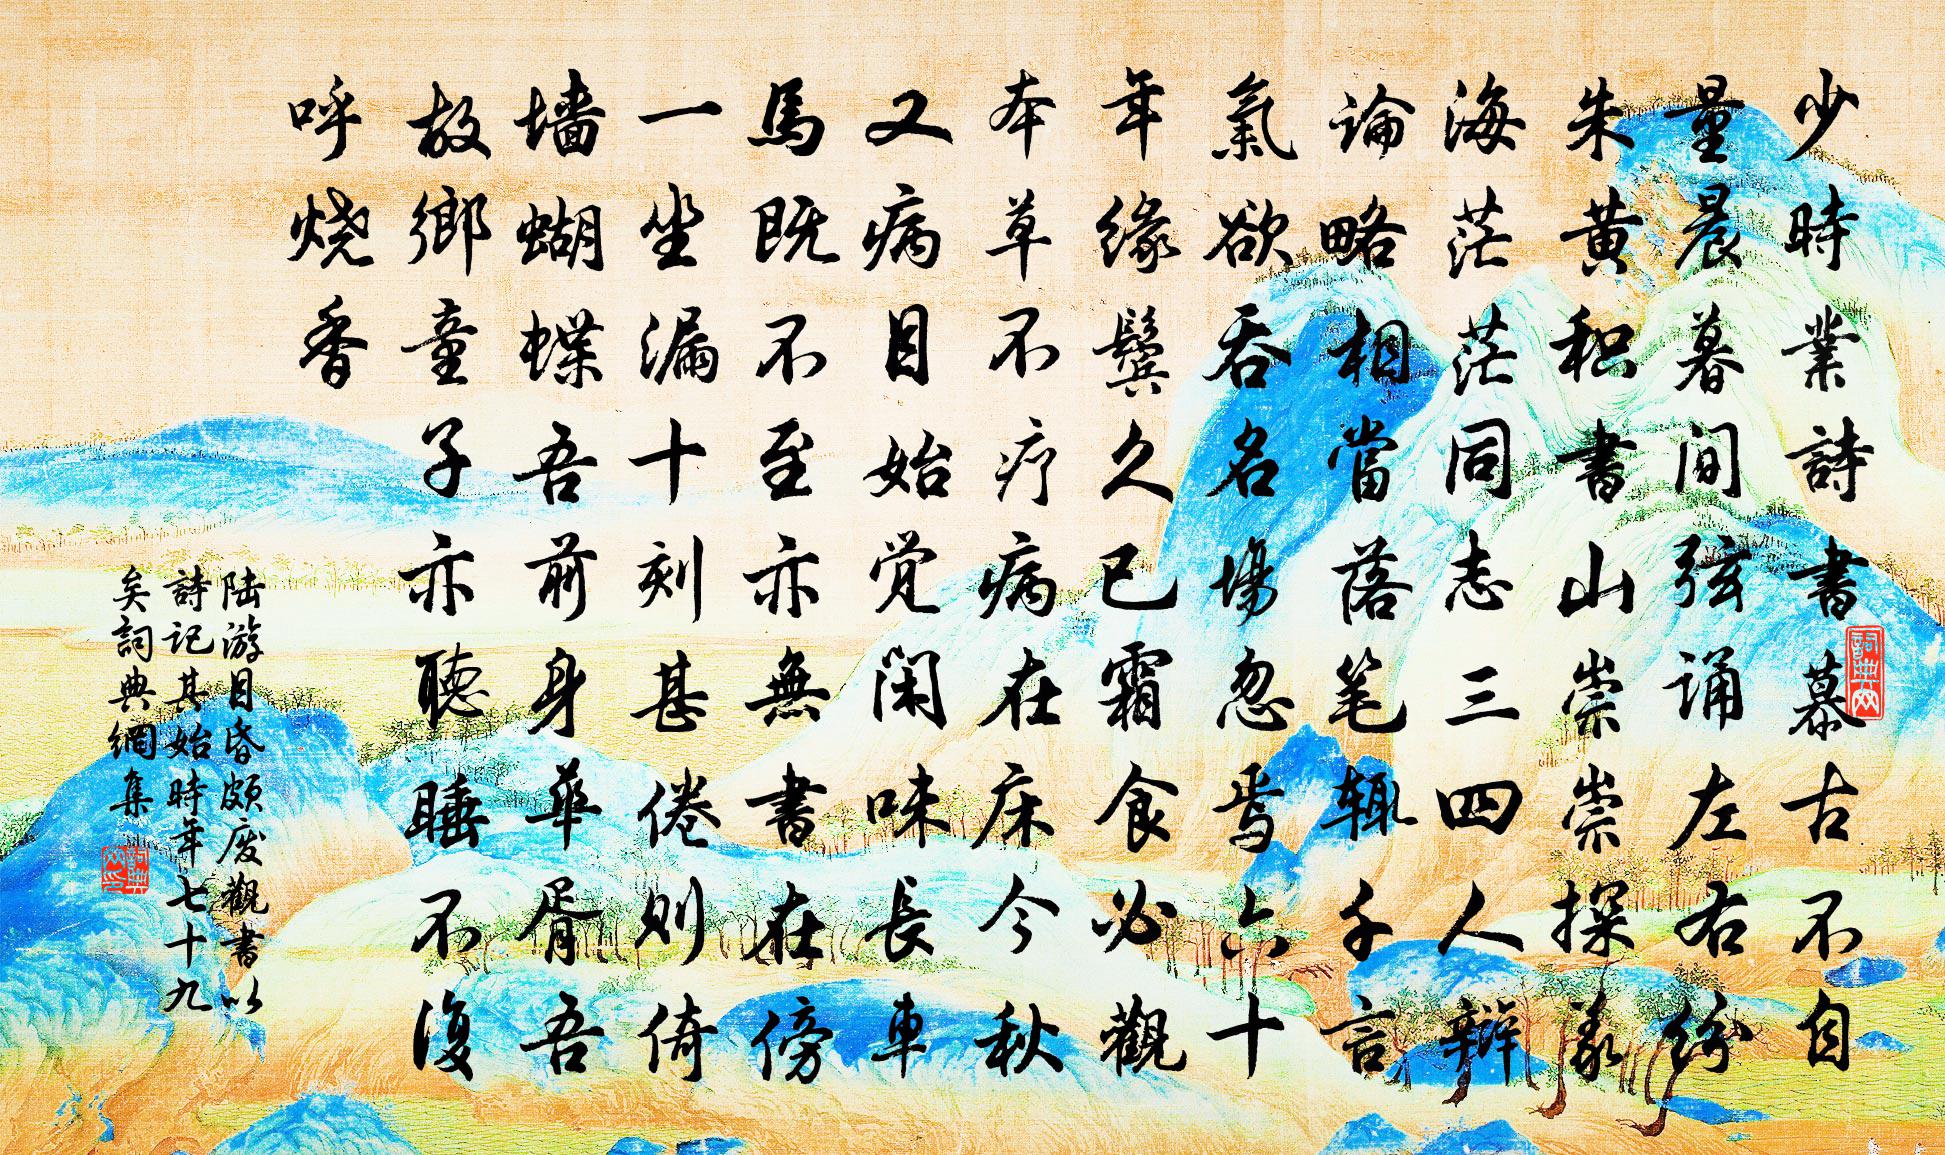 少時業詩書慕古不自
量晨暮间弦诵左右紛
朱黄积書山崇崇探義
海茫茫同志三四人辩
論略相當落笔辄千言
氣欲吞名場忽焉六十
年缘鬓久已霜食必觀
本草不疗病在床今秋
又病目始觉闲味長車
馬既不至亦無書在傍
一坐漏十刻甚倦则倚
墙蝴蝶吾前身華胥吾
故鄉童子亦聴睡不復
呼烧香
陆游目昏颇废觀書以
詩记其始時年七十九
矣詞典網集
詞典网